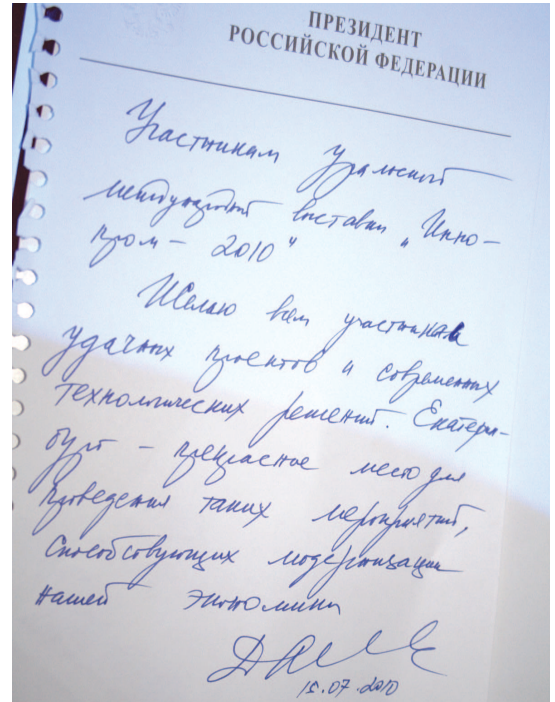 ПРЕЗИДЕНТ
РОССИЙСКОЙ ФЕДЕРАЦИИ
Участникам Уральской
международной выставки „Инно-
пром – 2010"
Желаю всем участникам
удачных проектов и современных
технологических решений. Екатерин-
бург – прекрасное место для
проведения таких мероприятий,
способствующих модернизации
нашей экономики
15.07.2010